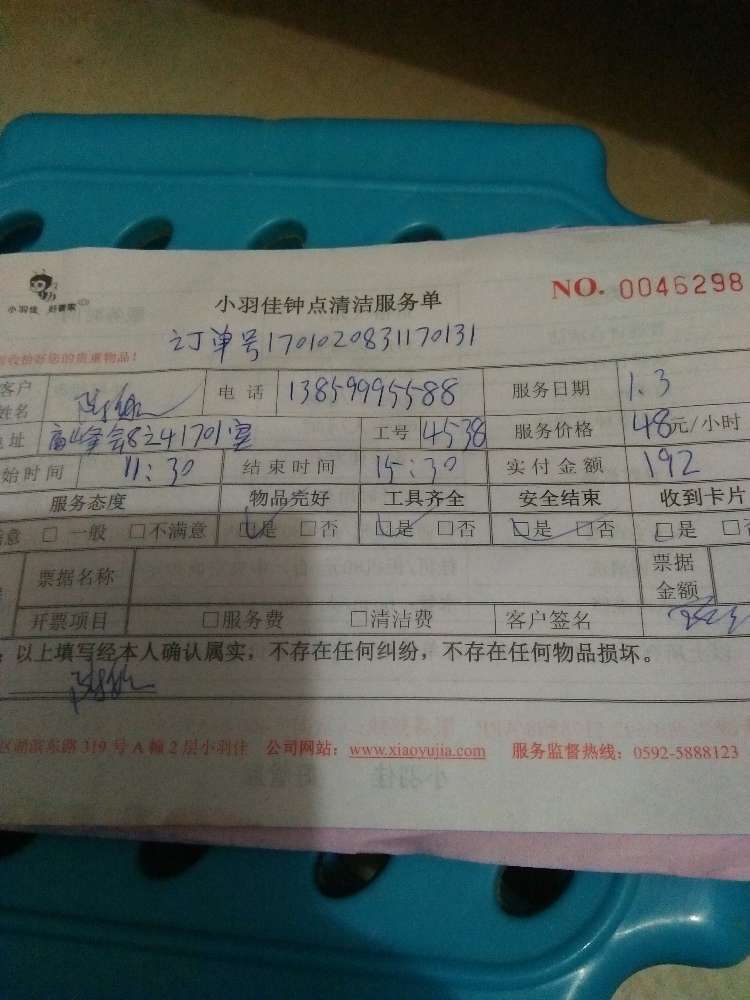 小羽佳 好管家
小羽佳钟点清洁服务单
NO. 0046298
订单号1701020831170131
收拾好您的贵重物品!
客户姓名 电话 13859995588 服务日期 1.3
地址 工号 4538 服务价格 48元/小时
始时间 11:30 结束时间 15:30 实付金额 192
服务态度 物品完好 工具齐全 安全结束 收到卡片
意 □ 一般 □不满意 □是 □否 □是 □否 □是 □否 □是 □
票据名称 票据金额
开票项目 □服务费 □清洁费 客户签名
以上填写经本人确认属实，不存在任何纠纷，不存在任何物品损坏。
区湖滨东路 319 号 A 幢 2 层小羽佳 公司网站：www.xiaoyujia.com 服务监督热线：0592-5888123